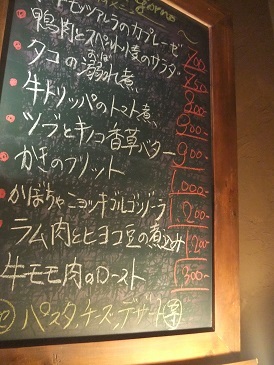 giorno
モッツアレラのカプレーゼ 700
鴨肉とスペルト小麦のサラダ
タコの溺れ煮 800
おぼ
牛トリッパのトマト煮 900
ツブとキノコ香草バター 900
かきのフリット
かぼちゃニョッキゴルゴンゾーラ 1,000-
ラム肉とヒヨコ豆の煮込み
牛モモ肉のロースト
他 パスタ、チーズ、デザート等